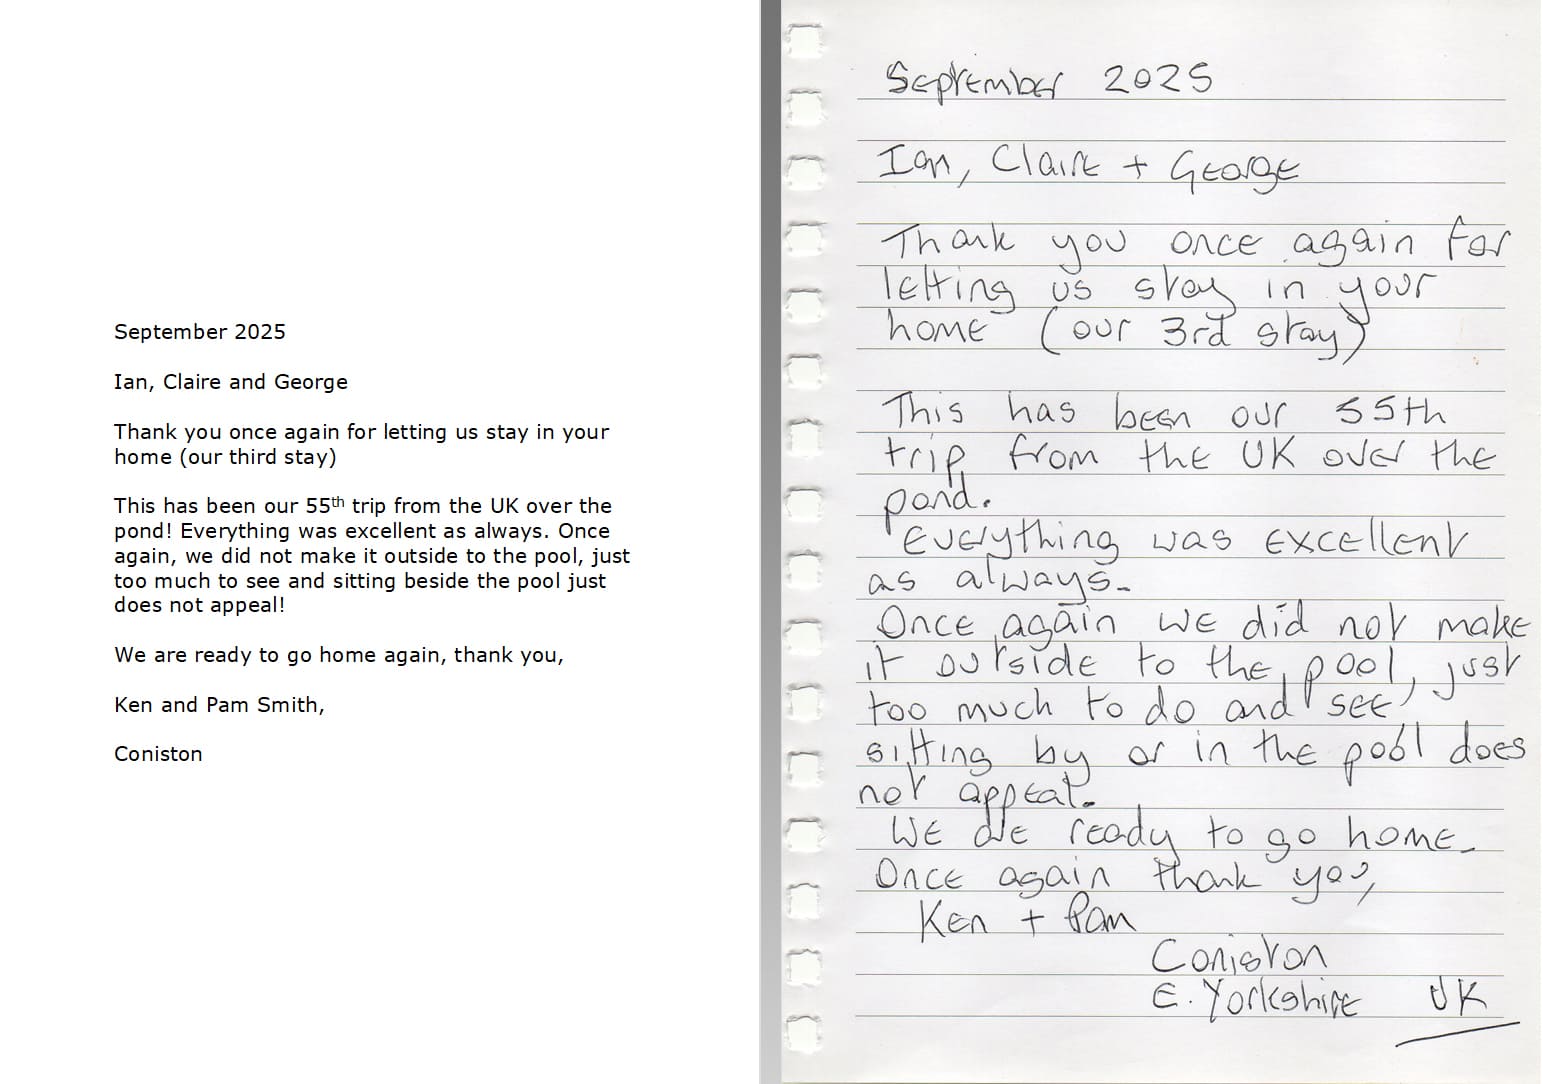 September 2025
Ian, Claire and George
Thank you once again for letting us stay in your
home (our third stay)
This has been our 55th trip from the UK over the
pond! Everything was excellent as always. Once
again, we did not make it outside to the pool, just
too much to see and sitting beside the pool just
does not appeal!
We are ready to go home again, thank you,
Ken and Pam Smith,
Coniston
September 2025
Ian, Claire + George
Thank you once again for
letting us stay in your
home (our 3rd stay)
This has been our 55th
trip from the UK over the
pond.
Everything was excellent
as always.
Once again we did not make
it outside to the pool, just
too much to do and see,
sitting by or in the pool does
not appeal.
We are ready to go home.
Once again thank you,
Ken + Pam
Coniston
E. Yorkshire UK